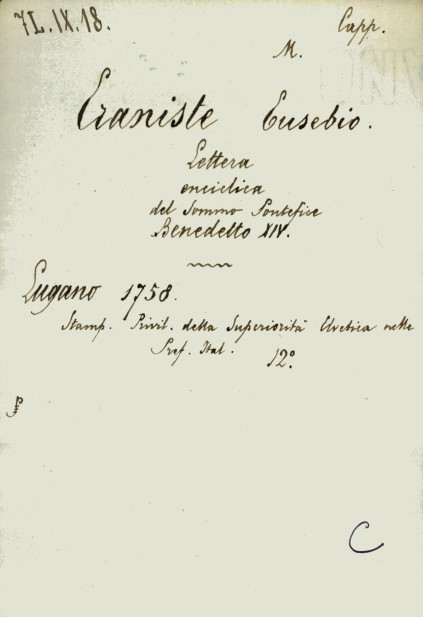 7L.IX.18.
Capp.
M.
Eraniste Eusebio.
Lettera
enciclica
del Sommo Pontefice
Benedetto XIV.
Lugano 1758.
Stamp. Privil. della Superiorità Elvetica nelle
Pref. Ital. 12º.
C